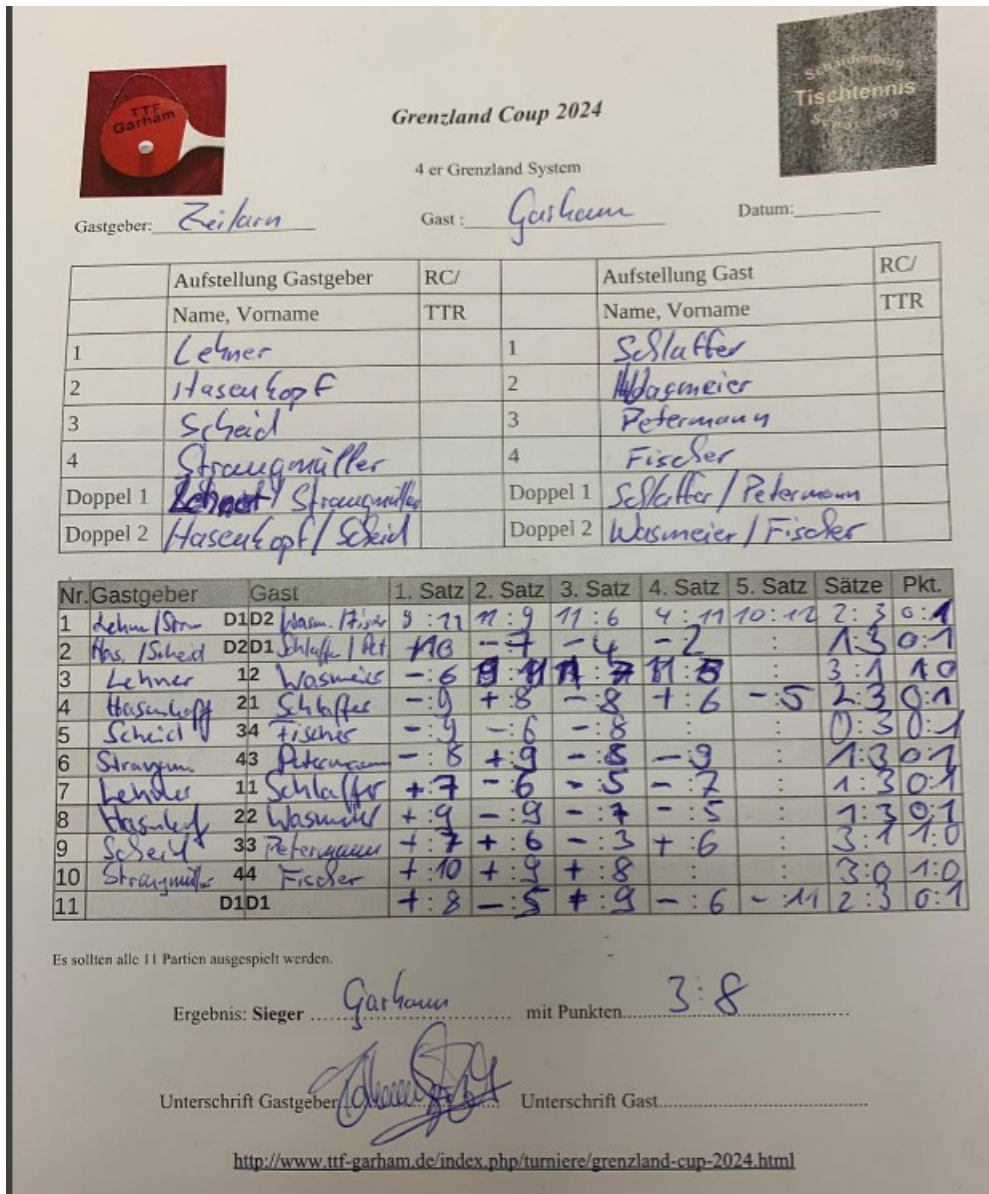 TTF
Garham
Schardenberg
Tischtennis
Grenzland Coup 2024
4 er Grenzland System
Gastgeber: Zeilarn Gast : Garham Datum:
Aufstellung Gastgeber RC/ Aufstellung Gast RC/
Name, Vorname TTR Name, Vorname TTR
1 Lehner 1 Schlaffer
2 Hasenkopf 2 Wasmeier
3 Scheid 3 Petermann
4 Straugmüller 4 Fischer
Doppel 1 Lehner / Straugmüller Doppel 1 Schlaffer / Petermann
Doppel 2 Hasenkopf / Scheid Doppel 2 Wasmeier / Fischer
Nr. Gastgeber Gast 1. Satz 2. Satz 3. Satz 4. Satz 5. Satz Sätze Pkt.
1 Lehn / Stra D1 D2 Wasm. / Fischer 9 : 11 11 : 9 11 : 6 4 : 11 10 : 12 2 : 3 0 : 1
2 Has. / Scheid D2 D1 Schlaffer / Pet - 7 - 4 - 2 : 1:3 0:1
3 Lehner 12 Wasmeier - : 6 : 3 : 1 1 0
4 Hasenkopf 21 Schlaffer - : 9 + : 8 - : 8 + : 6 - : 5 2:3 0:1
5 Scheid 34 Fischer - : 9 - : 6 - : 8 : : 0:3 0:1
6 Straugm 43 Petermann - : 8 + : 9 - : 8 - : 9 : 1:3 0 1
7 Lehner 11 Schlaffer + : 7 - : 6 - : 5 - : 7 : 1 : 3 0:1
8 Hasenkopf 22 Wasmeier + : 9 - : 9 - : 7 - : 5 : 1:3 0:1
9 Scheid 33 Petermann + : 7 + : 6 - : 3 + : 6 : 3:1 1:0
10 Straugmüller 44 Fischer + : 10 + : 9 + : 8 : : 3:0 1:0
11 D1 D1 + : 8 - : 5 + : 9 - : 6 - : 11 2:3 0:1
Es sollten alle 11 Partien ausgespielt werden.
Ergebnis: Sieger Garham mit Punkten 3:8
Unterschrift Gastgeber Unterschrift Gast
http://www.ttf-garham.de/index.php/turniere/grenzland-cup-2024.html